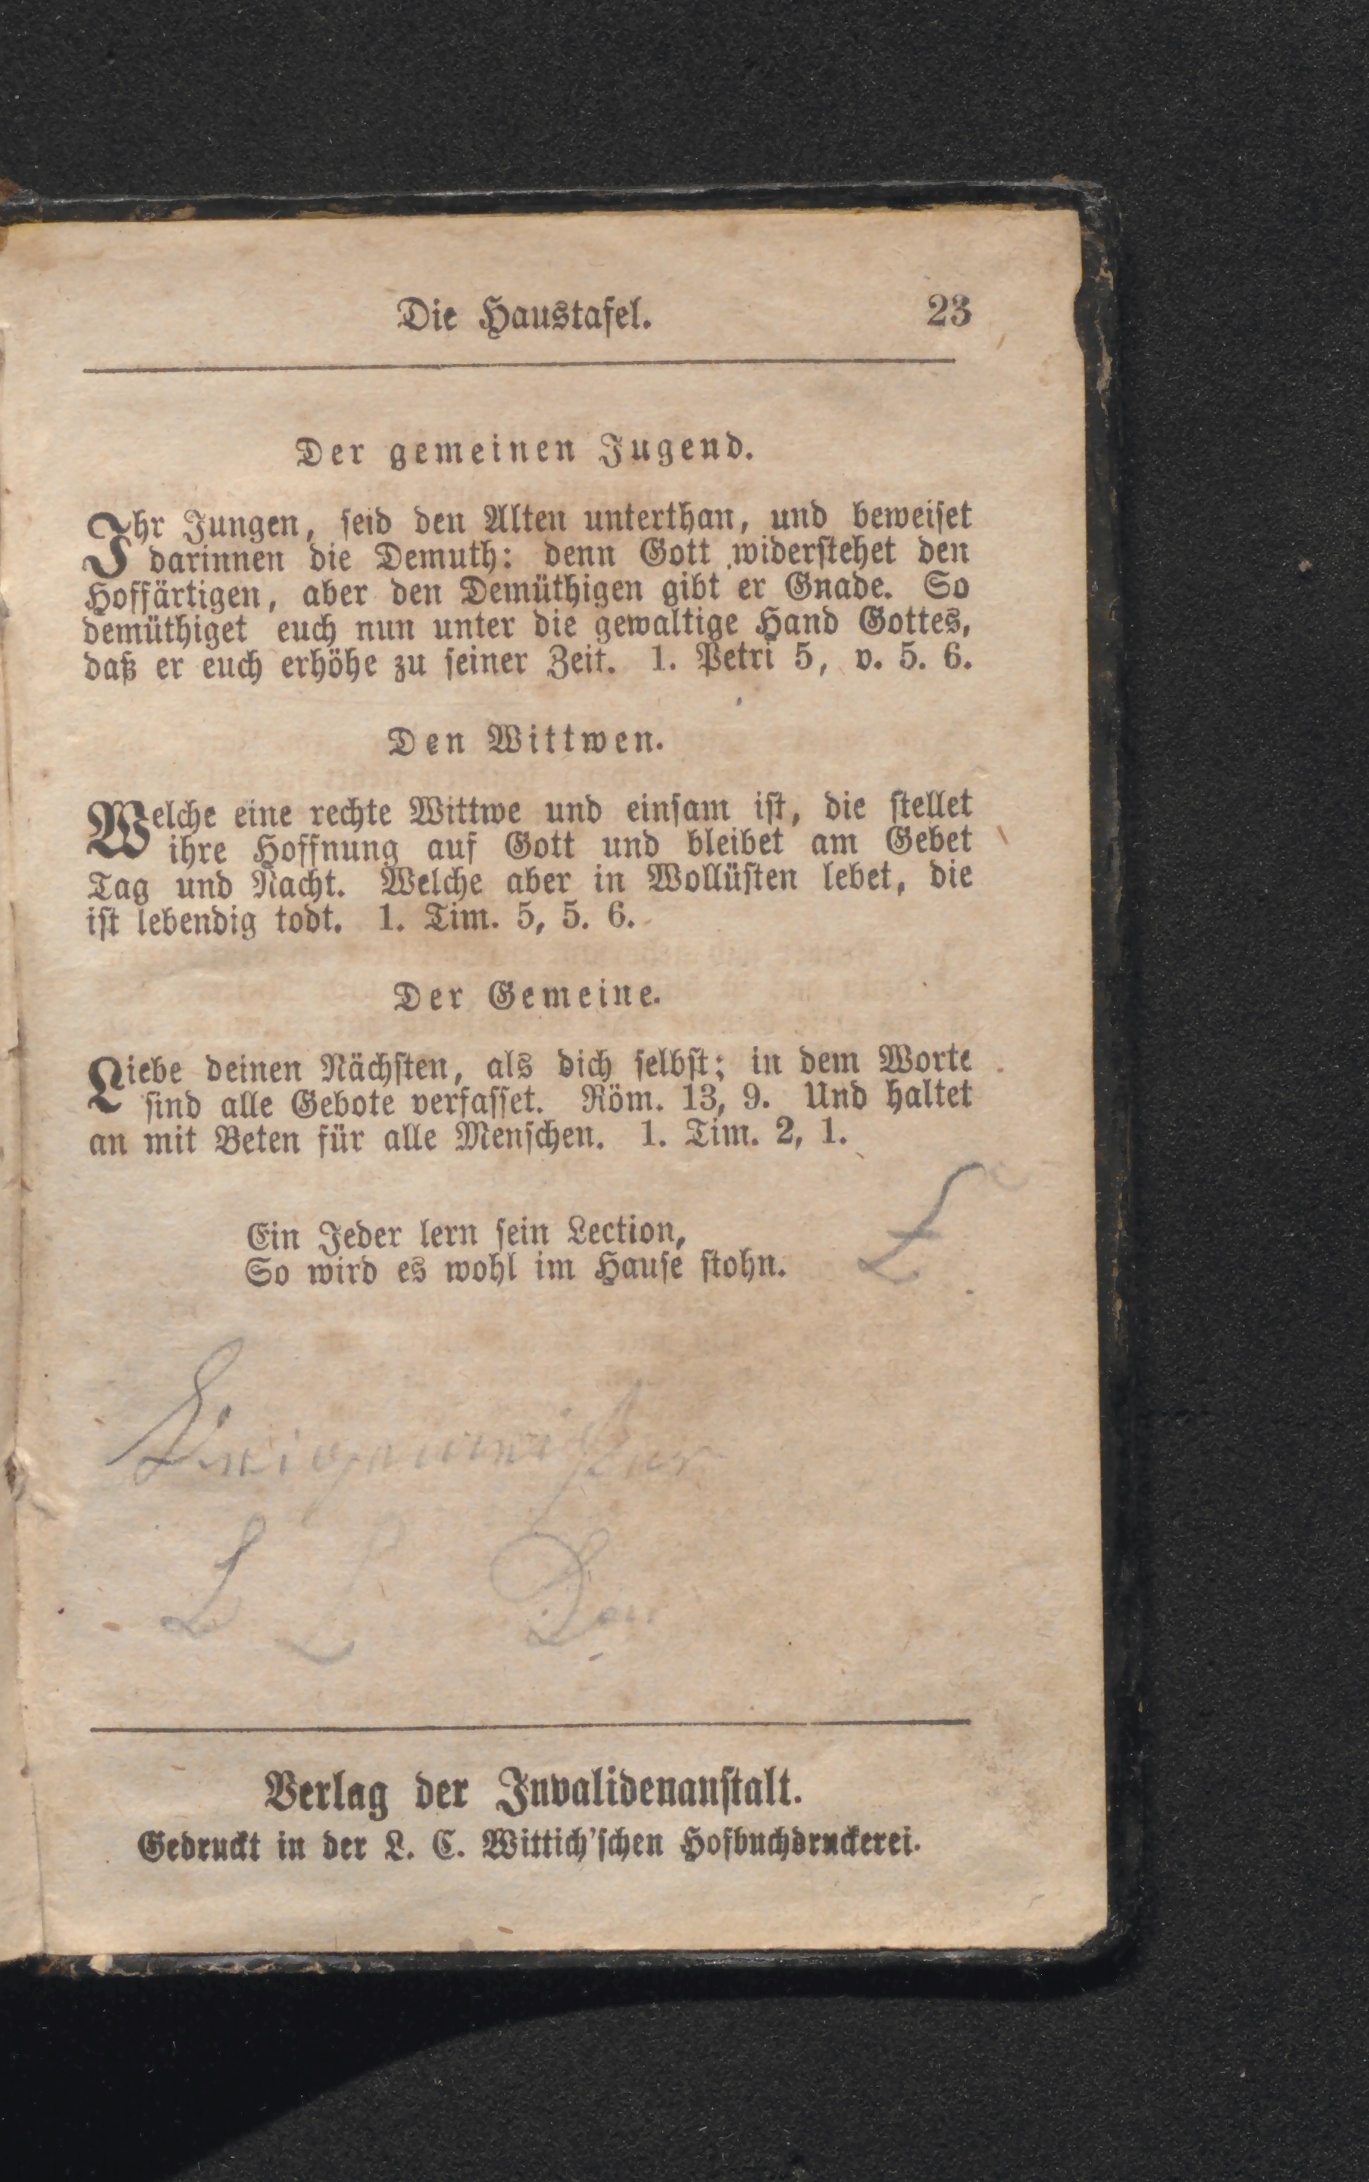 Die Haustafel. 23
Der gemeinen Jugend.
Ihr Jungen, seid den Alten unterthan, und beweiset
darinnen die Demuth: denn Gott widerstehet den
Hoffärtigen, aber den Demüthigen gibt er Gnade. So
demüthiget euch nun unter die gewaltige Hand Gottes,
daß er euch erhöhe zu seiner Zeit. 1. Petri 5, v. 5. 6.
Den Wittwen.
Welche eine rechte Wittwe und einsam ist, die stellet
ihre Hoffnung auf Gott und bleibet am Gebet
Tag und Nacht. Welche aber in Wollüsten lebet, die
ist lebendig todt. 1. Tim. 5, 5. 6.
Der Gemeine.
Liebe deinen Nächsten, als dich selbst; in dem Worte
sind alle Gebote verfasset. Röm. 13, 9. Und haltet
an mit Beten für alle Menschen. 1. Tim. 2, 1.
Ein Jeder lern sein Lection,
So wird es wohl im Hause stohn.
Verlag der Invalidenanstalt.
Gedruckt in der L. C. Wittich'schen Hofbuchdruckerei.